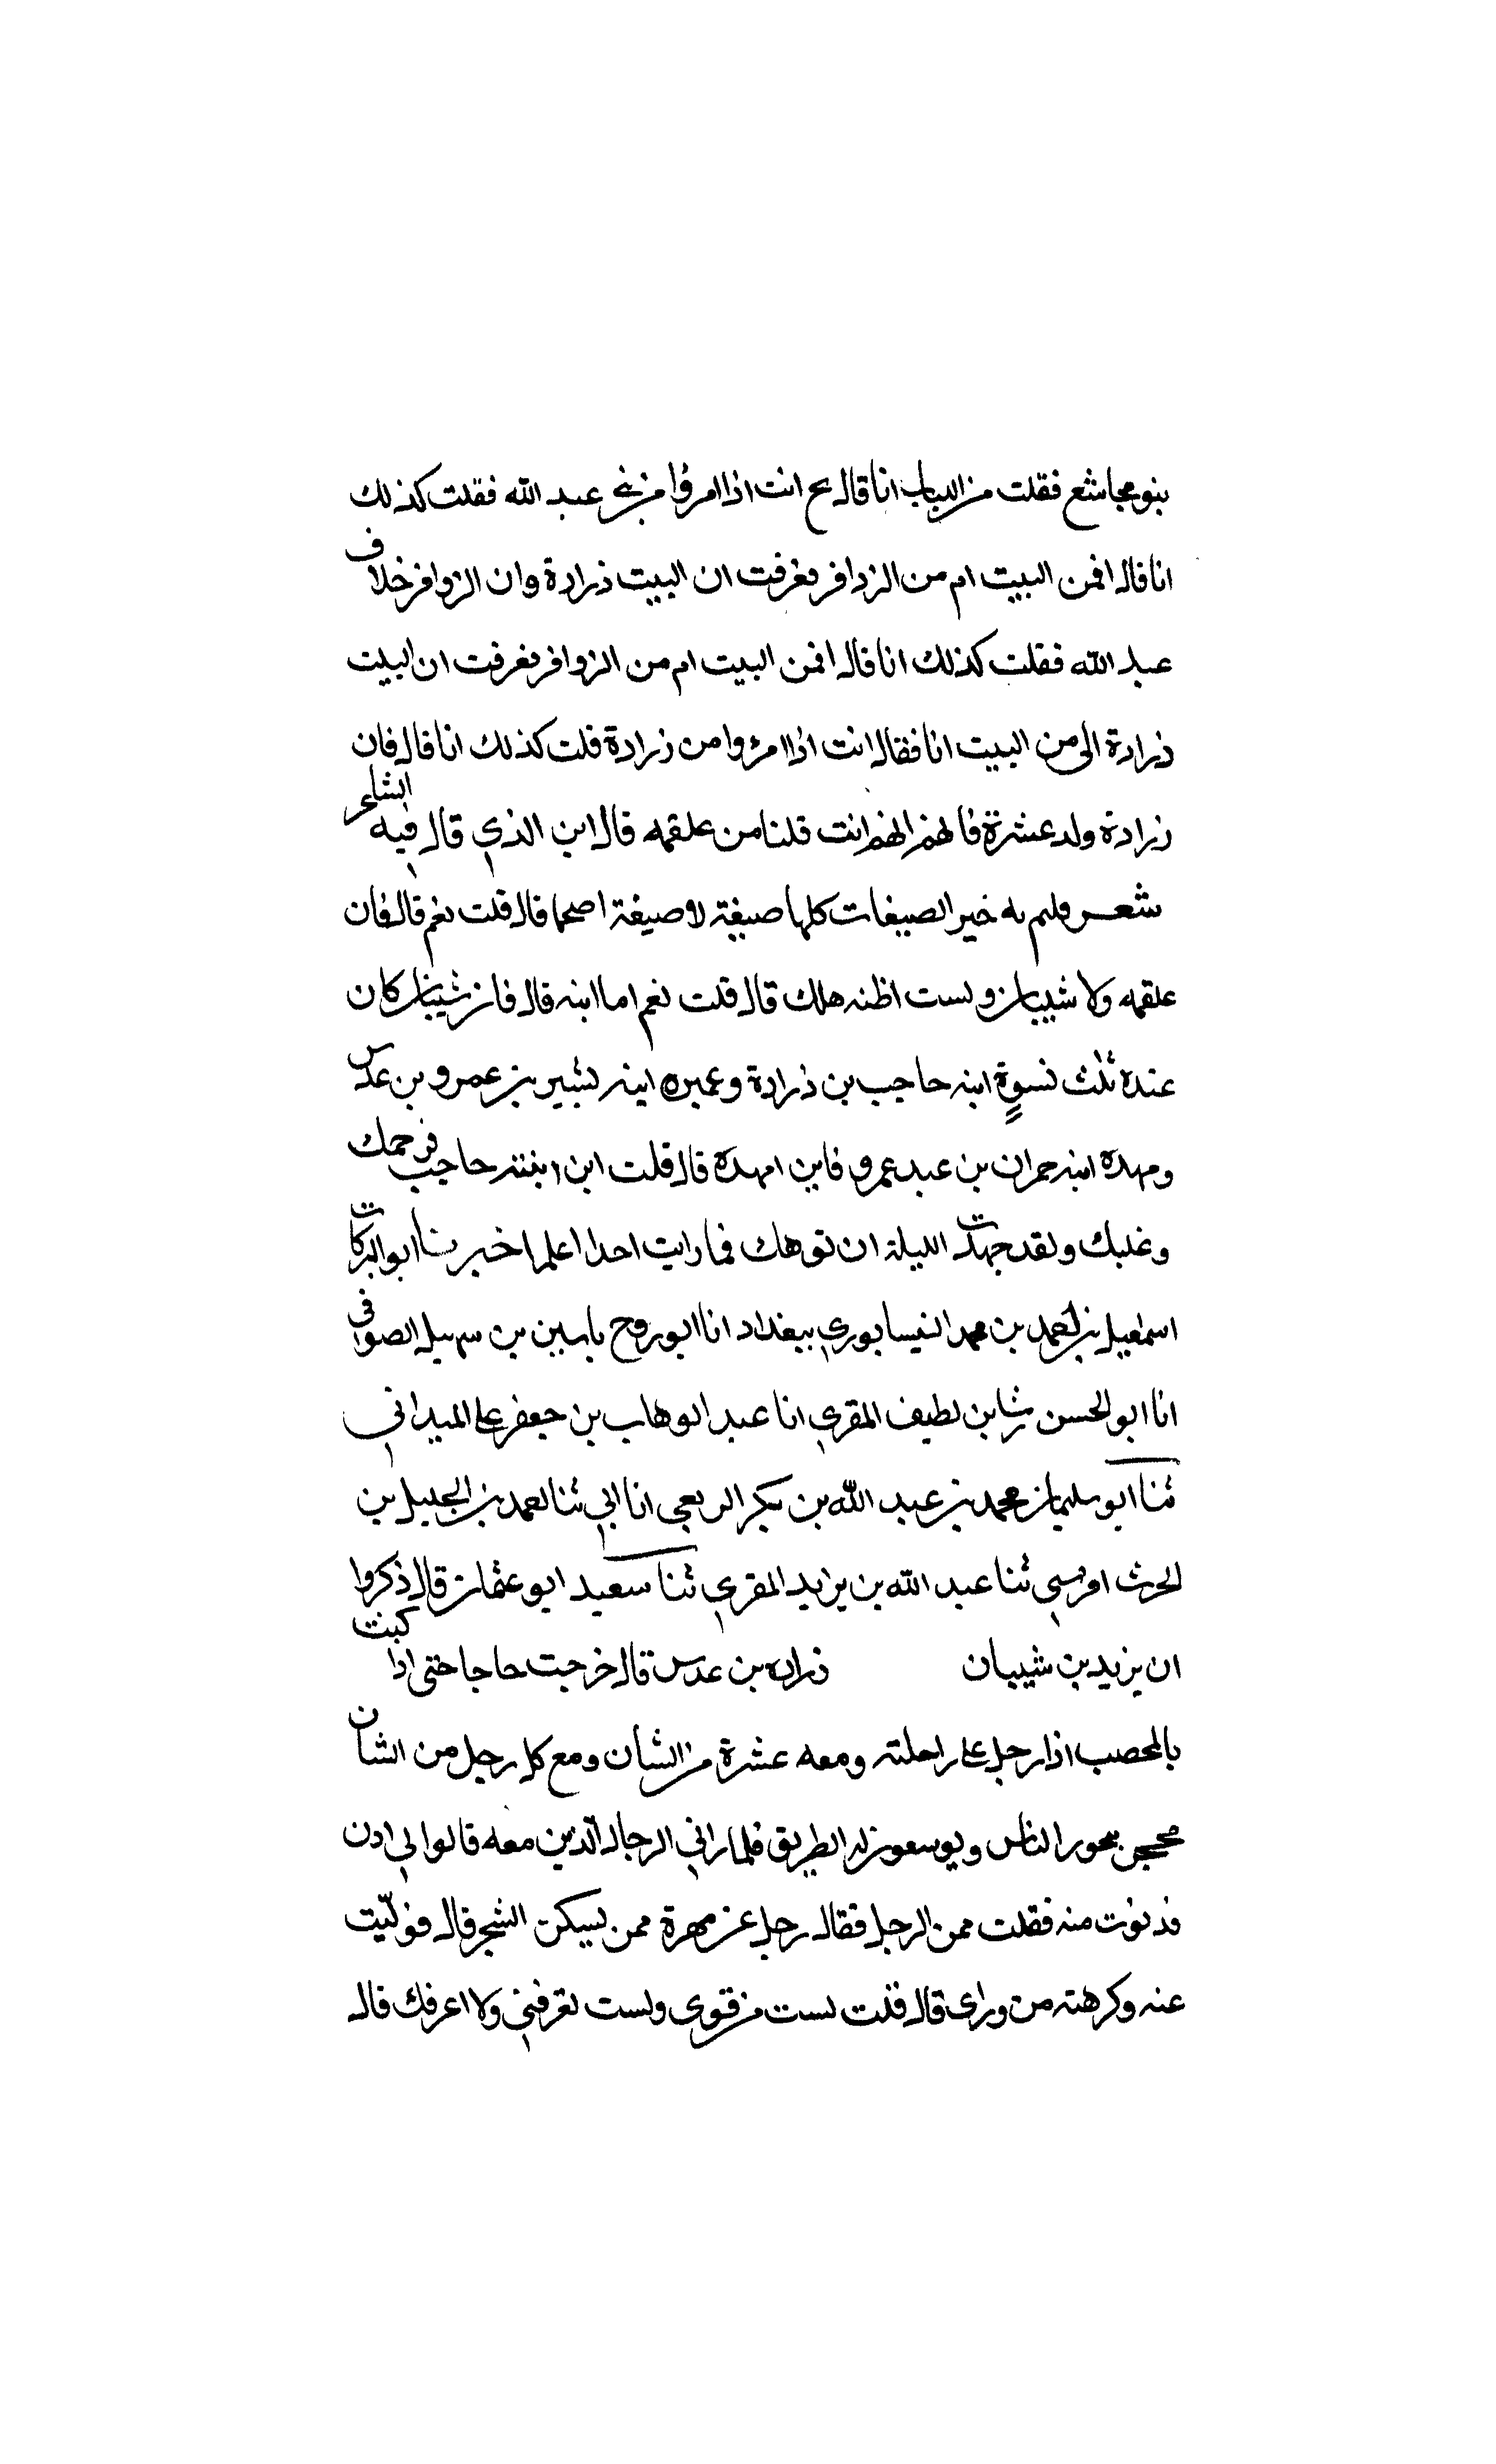 بنو مجاشع فقلت من اللباب انا قال بح انت اذا امرؤا من بني عبد الله فقلت كذلك
انا قال افمن البيت ام من الزوافر فعرفت ان البيت زرارة وان الزوافر خلاف
عبد الله فقلت كذلك انا قال افمن البيت ام من الزوافر فعرفت ان البيت
زرارة الى من البيت انا فقال انت اذا امرؤا من زرارة قلت كذلك انا قال فان
زرارة ولد عشرة فا لهم ايهم انت قلنا من علقمه قال ابن الذي قال فيه الشاعر
شعر فلم به خير الصيغات كلها صيغة لا صيغة اصحا قال قلت نعم قال فان
علقمه ولا شيبان ولست اظنه هلك قال قلت نعم اما ابنه قال فان شيبان كان
عنده ثلث نسوة ابنه حاجب بن زرارة وعميره ابنه بشير بن عمرو بن عدس
ومهده ابنه حمران بن عبد عمرو فاين امهدة قال قلت ابن ابنته حاجب فرحمك
وغلبك ولقد جهدت الليلة ان توهك فما رايت احدا اعلم اخبرنا ابو البركات
اسمعيل بن احمد بن محمد النيسابوري ببغداد انا ابو روح ياسين بن سهيل الصوافي
انا ابو الحسن رشا بن لطيف المقري انا عبد الوهاب بن جعفر علي الميداني
ثنا ابو سليمان محمد بن عبد الله بن بكر الربعي انا ابي ثنا احمد بن الجليل بن
الحرث ثنا عبد الله بن يزيد المقري ثنا سعيد ابو عثمان قال ذكروا
ان يزيد بن شيبان زراره بن عدس قال خرجت حاجا حتى اذا كنت
بالمحصب اذا رجل على راحلته ومعه عشرة من الشان ومع كل رجل من الشان
محجن يحور الناس ويوسعون له الطريق فلما راني الرجال الذين معه قالوا لي ادن
فدنوت منه فقلت ممن الرجل فقال رجل عن مهرة ممن يسكن الشجر قال فوليت
عنه وكرهته من وراى قال قلت لست من قوى ولست تعرفني ولا اعرفك قال